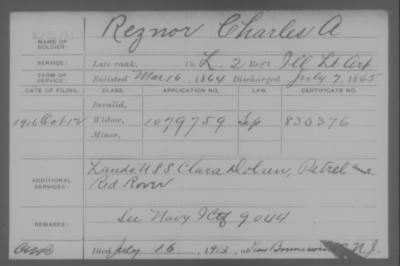 NAME OF SOLDIER: Reznor Charles A
SERVICE: Late rank, Co. L. 2 Reg't Ill Lt Art
TERM OF SERVICE: Enlisted Mar 16, 1864 Discharged July 7, 1865
DATE OF FILING. CLASS. APPLICATION NO. LAW. CERTIFICATE NO.
Invalid,
1916 Oct 12 Widow, 1079759 830376
Minor,
ADDITIONAL SERVICES: Lands. U S S Clara Dolsen, Petrel and
Red Rover
REMARKS: See Navy Ictf 9044
Died July 16, 1912, at New Brunswick N. J.